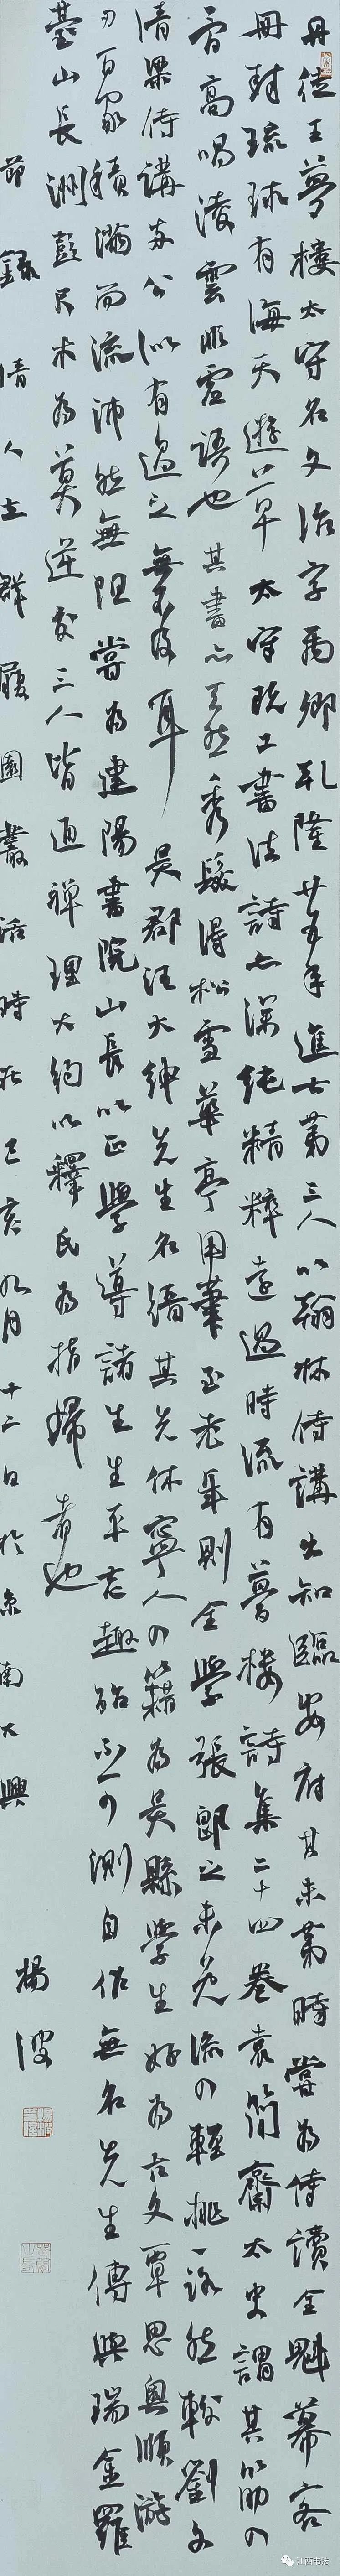 丹徒王夢樓太守名文治字禹卿乾隆廿五年進士第三人以翰林侍講出知臨安府其未第時嘗為侍讀全魁幕客
冊封琉球有海天遊草太守既工書法詩亦深純精粹遠過時流有夢樓詩集二十四卷袁簡齋太史謂其以助入
高唱淩雲非虛語也其書亦天然秀髮得松雪華亭用筆至老年則全學張即之未免流入輕佻一路然較劉文
清梁侍講兩公似有過之無不及耳吳郡汪大紳先生名縉其先休寧人入籍為吳縣學生好為古文覃思奧順游
百家積滿而流沛然無阻嘗為建陽書院山長以正學導諸生生平志趣殆不可測自作無名先生傳與瑞金羅
臺山長洲彭尺木為莫逆交三人皆通禪理大約以釋氏為指歸者也
節錄清人立群履園叢話時在己亥九月十二日於京南大興
楊波
江西书法